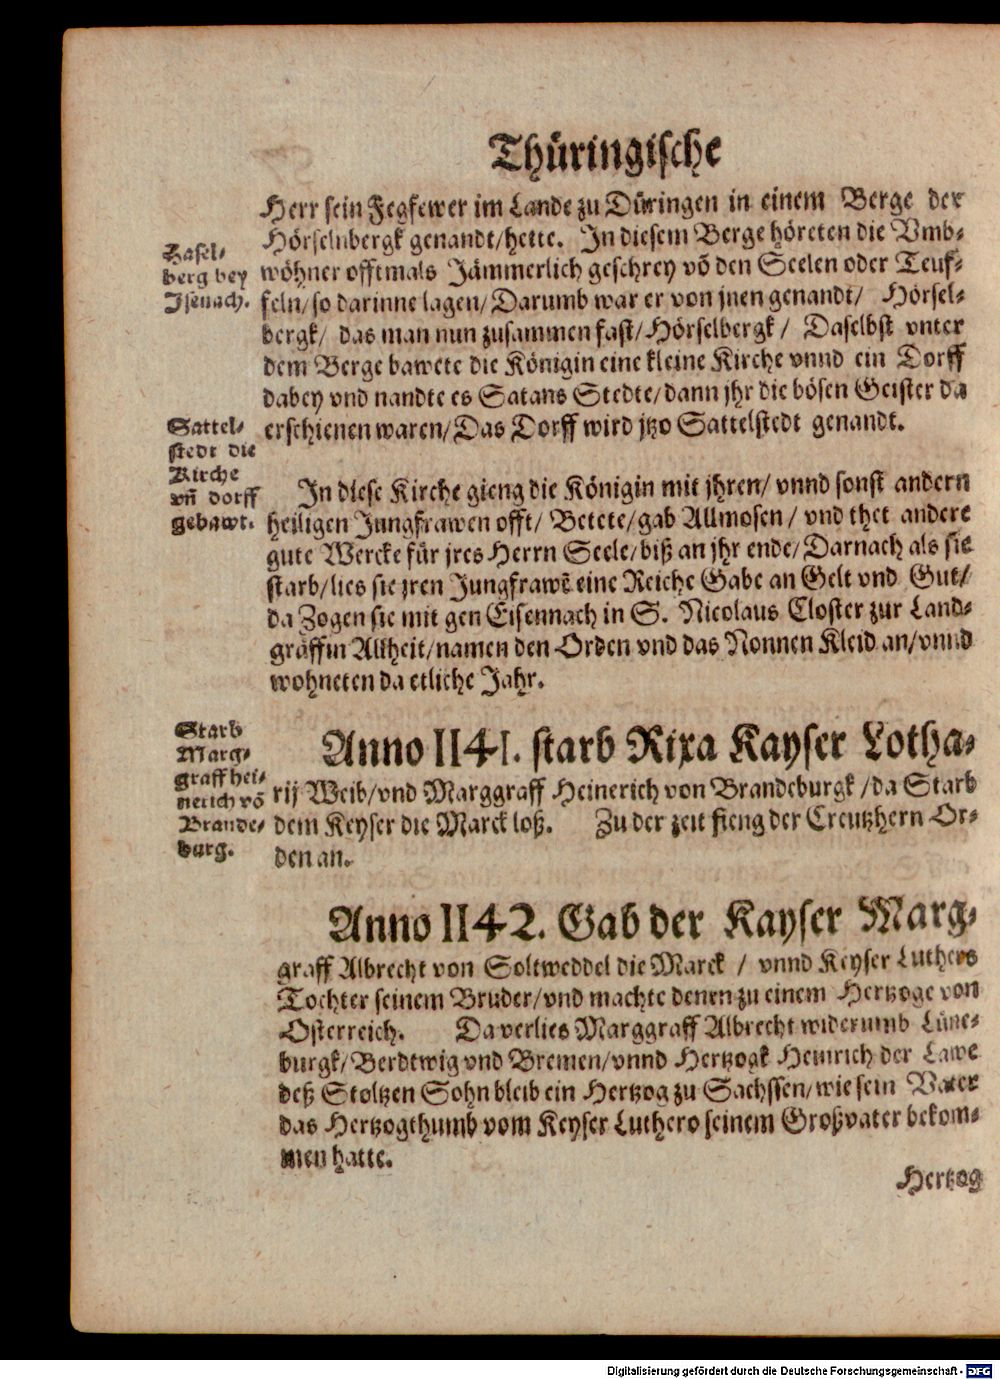 Thüringische
Herr sein Fegfewer im Lande zu Düringen in einem Berge der
Hörselnbergk genandt/hette. In diesem Berge höreten die Vmb-
wöhner offtmals Jämmerlich geschrey võ den Seelen oder Teuf-
feln/so darinne lagen/Darumb war er von jnen genandt/ Hörsel-
bergk/ das man nun zusammen fast/Hörselbergk/ Daselbst vnter
dem Berge bawete die Königin eine kleine Kirche vnnd ein Dorff
dabey vnd nandte es Satans Stedte/dann jhr die bösen Geister da
erschienen waren/Das Dorff wird jtzo Sattelstedt genandt.
Hasel-
berg bey
Isenach.
Sattel-
stedt die
Kirche
vñ dorff
gebawt.
In diese Kirche gieng die Königin mit jhren/ vnnd sonst andern
heiligen Jungfrawen offt/ Betete/gab Allmosen/ vnd thet andere
gute Wercke für jres Herrn Seele/biß an jhr ende/Darnach als sie
starb/lies sie jren Jungfrawẽ eine Reiche Gabe an Gelt vnd Gut/
da Zogen sie mit gen Eisennach in S. Nicolaus Closter zur Land-
gräffin Alkheit/namen den Orden vnd das Nonnen Kleid an/vnnd
wohneten da etliche Jahr.
Starb
Marg-
graff hei-
nerich võ
Brande-
burg.
Anno 1141. starb Rixa Kayser Lotha-
rij Weib/vnd Marggraff Heinerich von Brandeburgk/da Starb
dem Keyser die Marck loß. Zu der zeit fieng der Creutzhern Or-
den an.
Anno 1142. Gab der Kayser Marg-
graff Albrecht von Soltweddel die Marck / vnnd Keyser Luthers
Tochter seinem Bruder/vnd machte denen zu einem Hertzoge von
Osterreich. Da verlies Marggraff Albrecht widerumb Lüne-
burgk/Berdtwig vnd Bremen/vnnd Hertzogk Heinrich der Lawe
deß Stoltzen Sohn bleib ein Hertzog zu Sachssen/wie sein Vater
das Hertzogthumb vom Keyser Luthero seinem Großvater bekom-
men hatte.
Hertzog
Digitalisierung gefördert durch die Deutsche Forschungsgemeinschaft - DFG